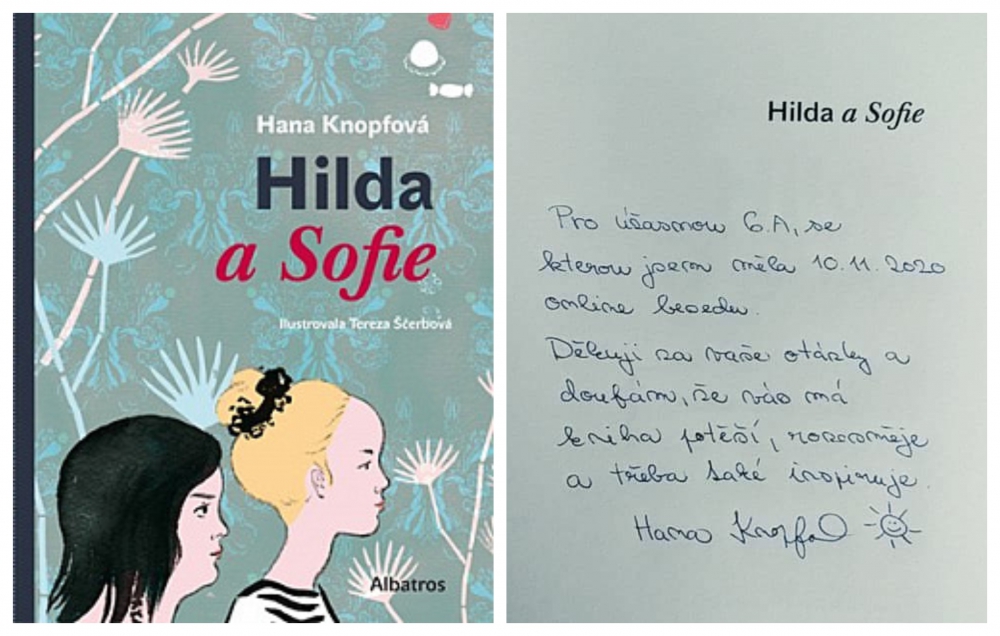 Hana Knopfová
Hilda
a Sofie
Ilustrovala Tereza Ščerbová
Albatros
Hilda a Sofie
Pro úžasnou 6.A, se
kterou jsem měla 10.11.2020
online besedu.
Děkuji za vaše otázky a
doufám, že vás má
kniha potěší, rozesměje
a třeba také inspiruje.
Hana Knopfová